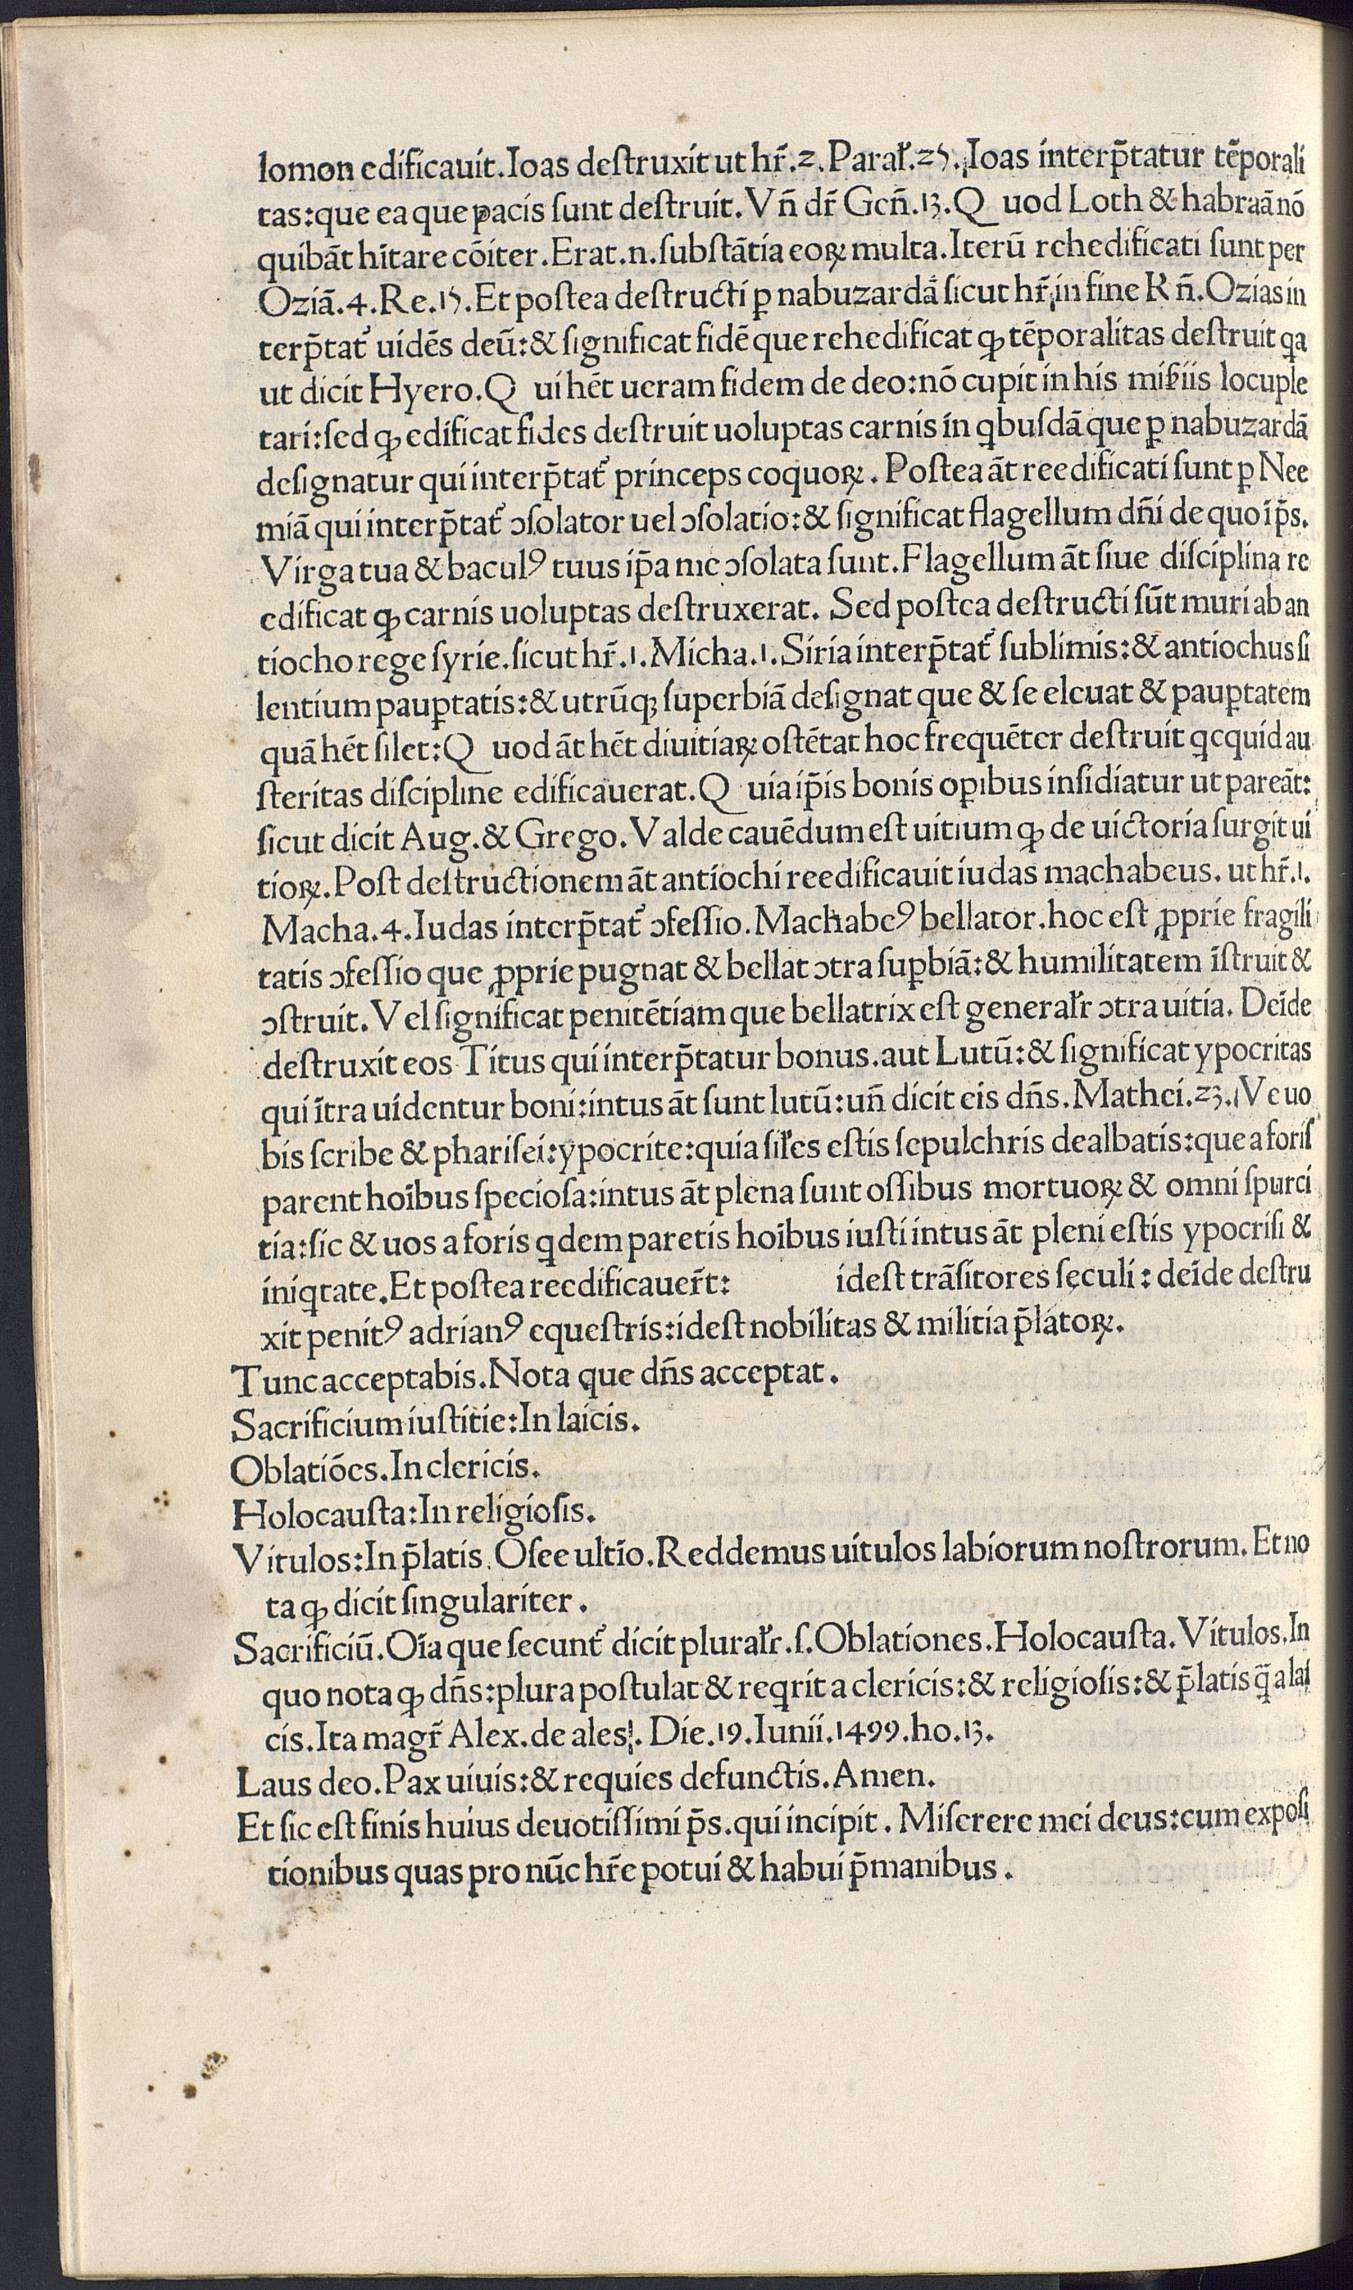 lomon edificauit.Ioas deſtruxit ut hr̃.2.Paraƚ.25.Ioas interp̃tatur tẽporali
tas:que ea que pacis ſunt deſtruit.Vñ dr̃ Geñ.13.Q uod Loth & habraã nõ
quibãt hĩtare cõiter.Erat.n.ſubſtãtia eoꝝ multa.Iterũ rehedificati ſunt per
Oziã.4.Re.15.Et poſtea deſtructi ꝑ nabuzardã ſicut hr̃ in fine R ñ.Ozias in
terp̃tat᷑ uidẽs deũ:& ſignificat fidẽ que rehedificat ꝙ tẽporalitas deſtruit qa
ut dicit Hyero.Q ui hẽt ueram fidem de deo:nõ cupit in his miẜiis locuple
tari:ſed ꝙ edificat fides deſtruit uoluptas carnis in qbuſdã que ꝑ nabuzardã
deſignatur qui interp̃tat᷑ princeps coquoꝝ. Poſtea ãt reedificati ſunt ꝑ Nee
miã qui interp̃tat᷑ ↄſolator uel ↄſolatio:& ſignificat flagellum dñi de quo ĩ p̃s.
Virga tua & baculꝰ tuus ip̃a me ↄſolata ſunt.Flagellum ãt ſiue diſciplina re
edificat ꝙ carnis uoluptas deſtruxerat. Sed poſtea deſtructi ſũt muri ab an
tiocho rege ſyrie.ſicut hr̃.1.Micha.1.Siria interp̃tat᷑ ſublimis:& antiochus ſi
lentium pauꝑtatis:& utrũqꝫ ſuperbiã deſignat que & ſe eleuat & pauꝑtatem
quã hẽt ſilet:Q uod ãt hẽt diuitiaꝝ oſtẽtat hoc frequẽter deſtruit qcquid au
ſteritas diſcipline edificauerat.Q uia ip̃is bonis oꝑibus inſidiatur ut pareãt:
ſicut dicit Aug.& Grego.Valde cauẽdum eſt uitium ꝙ de uictoria ſurgit ui
tioꝝ.Poſt deſtructionem ãt antiochi reedificauit iudas machabeus. ut hr̃.1.
Macha.4.Iudas interp̃tat᷑ ↄfeſſio.Machabeꝰ bellator.hoc eſt ꝓprie fragili
tatis ↄfeſſio que ꝓprie pugnat & bellat ↄtra ſuꝑbiã:& humilitatem ĩſtruit &
ↄſtruit.Vel ſignificat penitẽtiam que bellatrix eſt generaƚr ↄtra uitia. Deĩde
deſtruxit eos Titus qui interp̃tatur bonus.aut Lutũ:& ſignificat ypocritas
qui ĩtra uidentur boni:intus ãt ſunt lutũ:uñ dicit eis dñs.Mathei.23.Ve uo
bis ſcribe & phariſei:ypocrite:quia ſiƚes eſtis ſepulchris dealbatis:que a foriſ
parent hoĩbus ſpecioſa:intus ãt plena ſunt oſſibus mortuoꝝ & omni ſpurci
tia:ſic & uos a foris qdem paretis hoĩbus iuſti intus ãt pleni eſtis ypocriſi &
iniqtate.Et poſtea reedificauer̃t: ideſt trãſitores ſeculi: deĩde deſtru
xit penitꝰ adrianꝰ equeſtris:ideſt nobilitas & militia p̃latoꝝ.
Tunc acceptabis.Nota que dñs acceptat.
Sacrificium iuſtitie:In laicis.
Oblatiões.In clericis.
Holocauſta:In religioſis.
Vitulos:In p̃latis.Oſee ultĩo.Reddemus uitulos labiorum noſtrorum.Et no
ta ꝙ dicit ſingulariter.
Sacrificiũ.Oĩa que ſecunt᷑ dicit pluraƚr.ſ.Oblationes.Holocauſta.Vitulos.In
quo nota ꝙ dñs:plura poſtulat & reqrit a clericis:& religioſis:& p̃latis q̃ a lai
cis.Ita magr̃ Alex.de ales. Die.19.Iunii.1499.ho.13.
Laus deo.Pax uiuis:& requies defunctis.Amen.
Et ſic eſt finis huius deuotiſſimi p̃s.qui incipit. Miſerere mei deus:cum expoſi
tionibus quas pro nũc hr̃e potui & habui p̃ manibus.